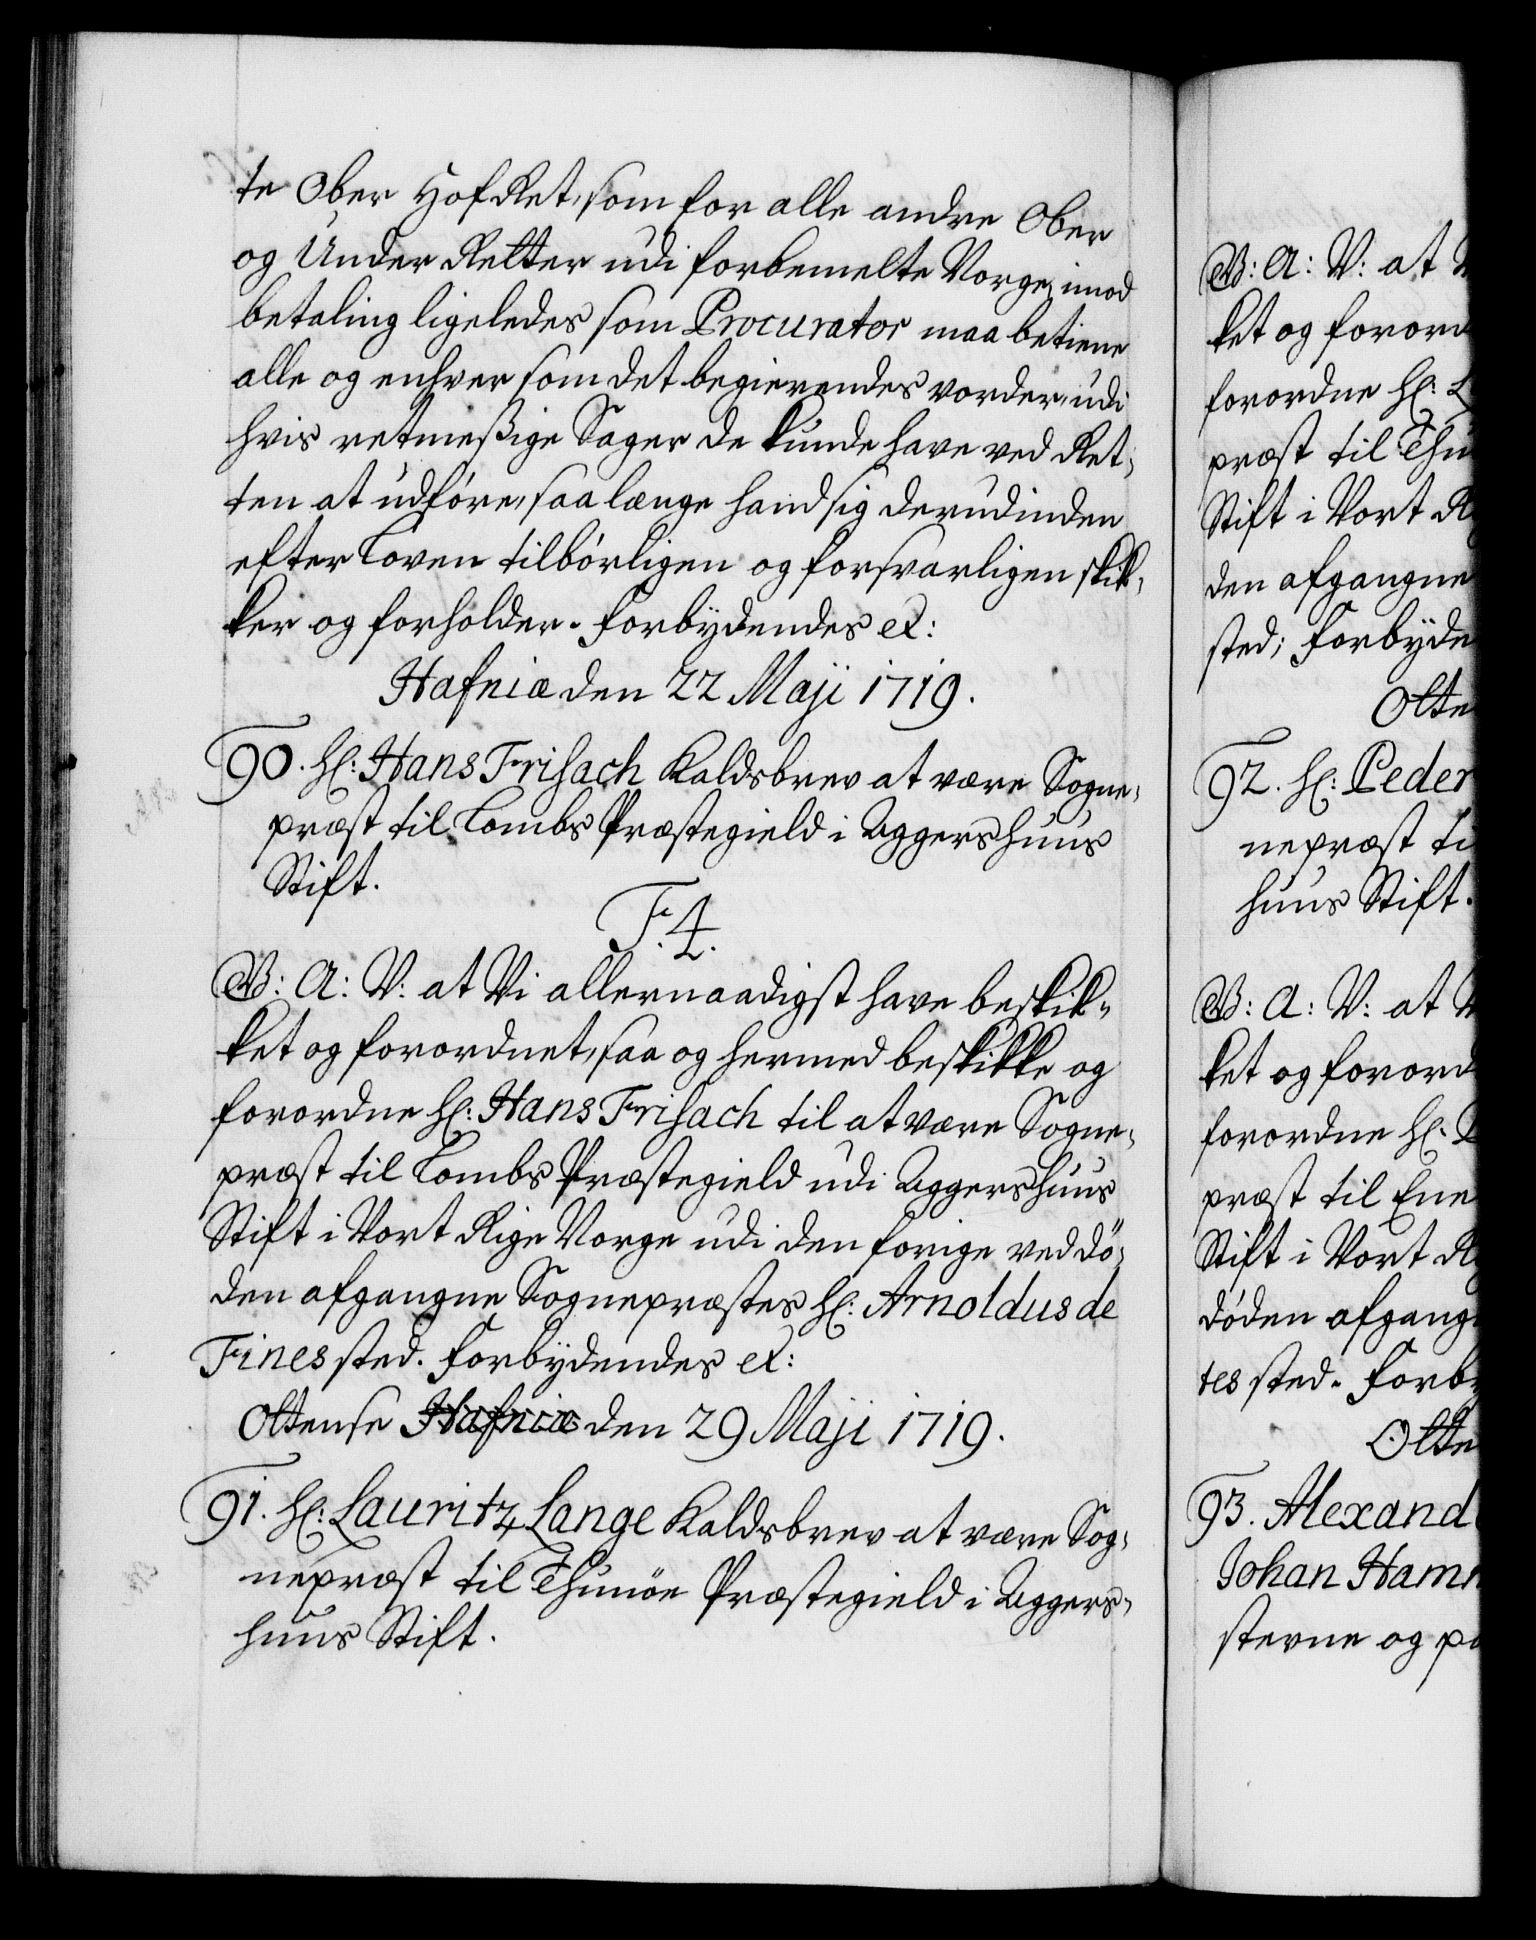 te Ober HofRet, som for alle andre Ober
og Under Retter udi forbemelte Norge, imod
betaling ligeledes som Procurator maa betiene
alle og enhver som det begierendes vorder, udi
hvis retmeßige Sager de kunde have ved Ret-
ten at udføre, saa længe hand sig derudinden
efter Loven tilbørligen og forsvarligen skik-
ker og forholder. Forbydendes etc:
Hafniæ den 22 Maji 1719.
90. Hr: Hans Frisach Kaldsbrev at være Sogne-
præst til Tombs Præstegield i Aggershuus
Stift.
F. 4.
G. A: V: at Vi allernaadigst have beskik-
ket og forordnet, saa og hermed beskikke og
forordne Hr: Hans Frisach til at være Sogne-
præst til Tombs Præstegield udi Aggershuus
Stift i Vort Rige Norge udi den forige ved dø-
den afgangne Sognepræstes Hr: Arnoldus de
Fines sted. Forbydendes etc:
Ottense Hafniæ den 29 Maji 1719.
91. Hr: Lauritz Lange Kaldsbrev at være Sog-
nepræst til Thunøe Præstegield i Aggers-
huus Stift.
G: A: V: at
ket og forord
forordne Hr: L
præst til Thu
Stift i Vort R
den afgangne
sted; Forbyde
Otte
92. Hr: Peder
nepræst ti
huus Stift.
G: A: V: at
ket og forord
forordne Hr.
præst til Ene
Stift i Vort R
døden afgang
tes sted. Forby
Otte
93. Alexand
Johan Ham
sterne og pa